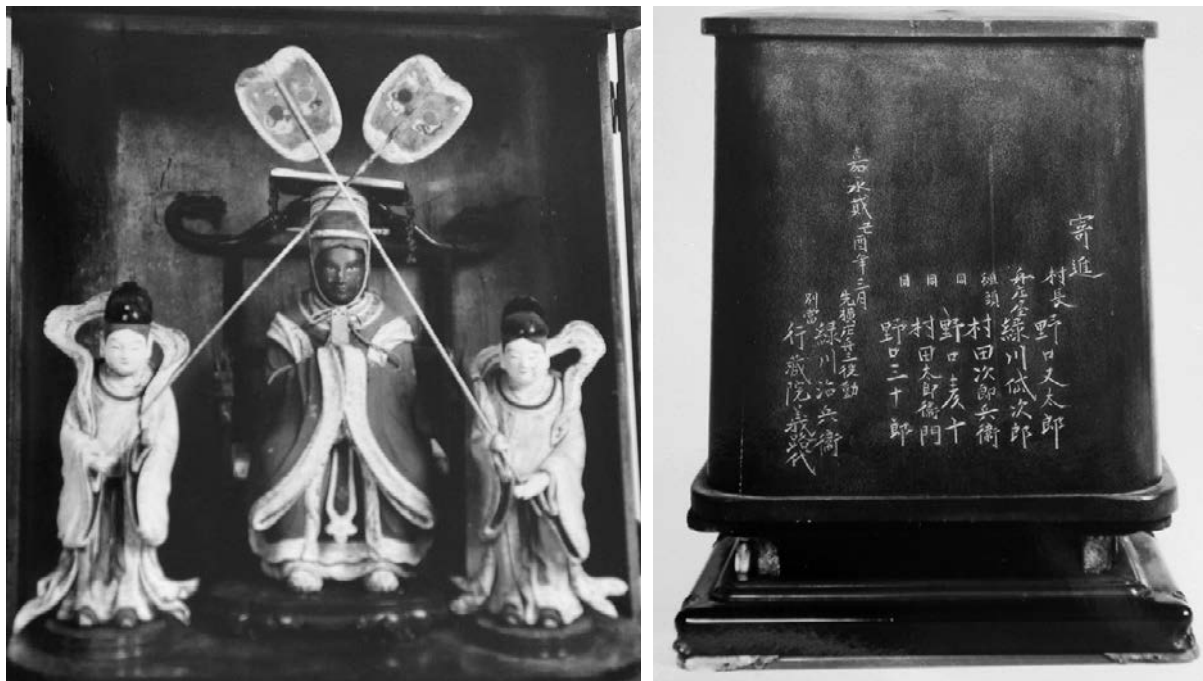 寄進
村長 野口又太郎
庄屋 緑川岱次郎
組頭 村田次郎兵衛
同 野口十
同 村田太郎衛門
同 野口三十郎
嘉永貳己酉年三月
緑川治兵衛
別當 行蔵院義代